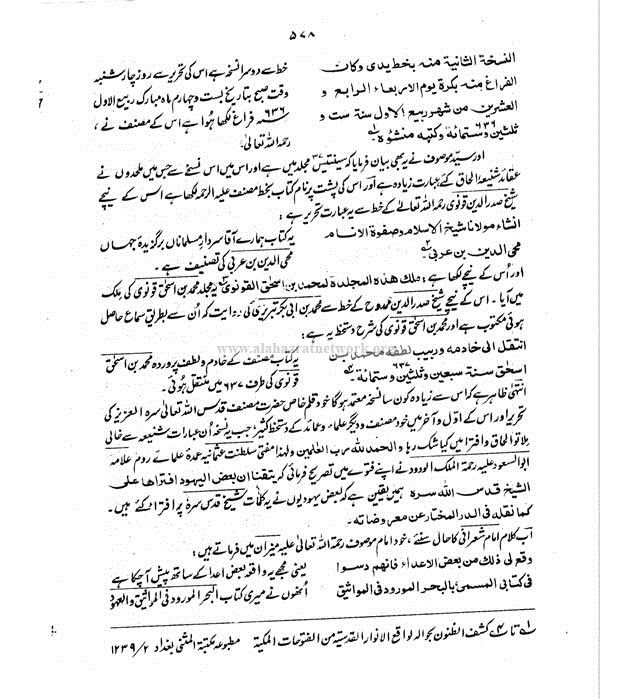 ۵۷۸
النسخة الثانية منه بخط يدى وكان
الفراغ منه بكرة يوم الاربعاء الرابع و
العشرين من شهر ربيع الاول سنة ست و
ثلثين وستمائة وكتبه منشؤه
خط سے دوسرا نسخہ ہے اس کی تحریر سے روز چار شنبہ
وقت صبح بتاریخ بست و چہارم ماہ مبارک ربیع الاول
۶۳۶ سنہ فراغ لکھا ہوا ہے اس کے مصنف نے ،
رحمہ اللہ تعالٰی۔
اور سید موصوف نے یہ بھی بیان فرمایا کہ سینتیس ۳۷ مجلد میں ہے اور اس میں اس نسخے سے جس میں ملحدوں نے
عقائد شنیعہ الحاق کئے عبارت زیادہ ہے اور اس کی پشت پر نام کتاب بخط مصنف علیہ الرحمہ لکھا ہے اس کے نیچے
شیخ صدر الدین قونوی رحمہ اللہ تعالٰی کے خط سے یہ عبارت تحریر ہے :
انشاء مولانا شيخ الاسلام وصفوة الانام
محى الدين بن عربى
یہ کتاب ہمارے آقا سردارِ مسلماناں برگزیدۂ جہاں
محی الدین بن عربی کی تصنیف ہے ۔
اور اُس کے نیچے لکھا ہے : ملك هذه المجلدة لمحمد بن اسحٰق القونوى یہ مجلد محمد بن اسحٰق قونوی کی ملک
میں آیا ۔ اس کے نیچے شیخ صدر الدین ممدوح کے خط سے محمد بن ابی بکر تبریزی کی روایت کہ اُن سے بطریق سماع حاصل
ہوئی مکتوب ہے اور محمد بن اسحٰق قونوی کی شرح دستخط یہ ہے :
انتقل الى خادمه وربيب لطفه محمد بن
اسحٰق سنة سبع وثلثين وستمائة ۶۳۷
یہ کتاب مصنف کے خادم و لطف پروردہ محمد بن اسحٰق
قونوی کی طرف ۶۳۷ میں منتقل ہوئی ۔
انتہی ظاہر ہے کہ اس سے زیادہ کون سا نسخہ معتمد ہوگا خود قلم خاص حضرت مصنف قدس اللہ تعالٰی سرہ العزیز کی
تحریر اور اس کے اول و آخر میں خود مصنف و دیگر علماء و عمائد کے دستخط کثیر، جب یہ نسخہ اُن عبارات شنیعہ سے خالی
ملا تو الحاق و افترا میں کیا شک رہا والحمد لله رب العٰلمين ولہذا مفتی سلطنت عثمانیہ عمدۃ علمائے روم علامہ
ابو السعود علیہ رحمۃ الملک الودود نے اپنے فتوے میں تصریح فرمائی کہ تيقنا ان بعض اليهود افتراها على
الشيخ قدس الله سره ہمیں یقین ہے کہ بعض یہودیوں نے یہ کلمات شیخ قدس سرہ پر افترا کئے ہیں ۔
كما نقله فى الدر المختار عن معروضاته ۔
اَب کلام امام شعرانی کا حال سنئے ، خود امام موصوف رحمۃ اللہ تعالٰی علیہ میزان میں فرماتے ہیں :
وقع لى ذلك من بعض الاعداء فانهم دسوا
فى كتابى المسمى بالبحر المورود فى المواثيق
یعنی مجھے یہ واقعہ بعض اعدا کے ساتھ پیش آچکا ہے
اُنھوں نے میری کتاب البحر المورود فی المواثیق والعہود
۱ تا ۴ کشف الظنون بحوالہ لواقع الانوار القدسیۃ من الفتوحات المکیۃ مطبوعہ مکتبۃ المثنیٰ بغداد ۲/ ۱۲۳۹
www.alahazratnetwork.org